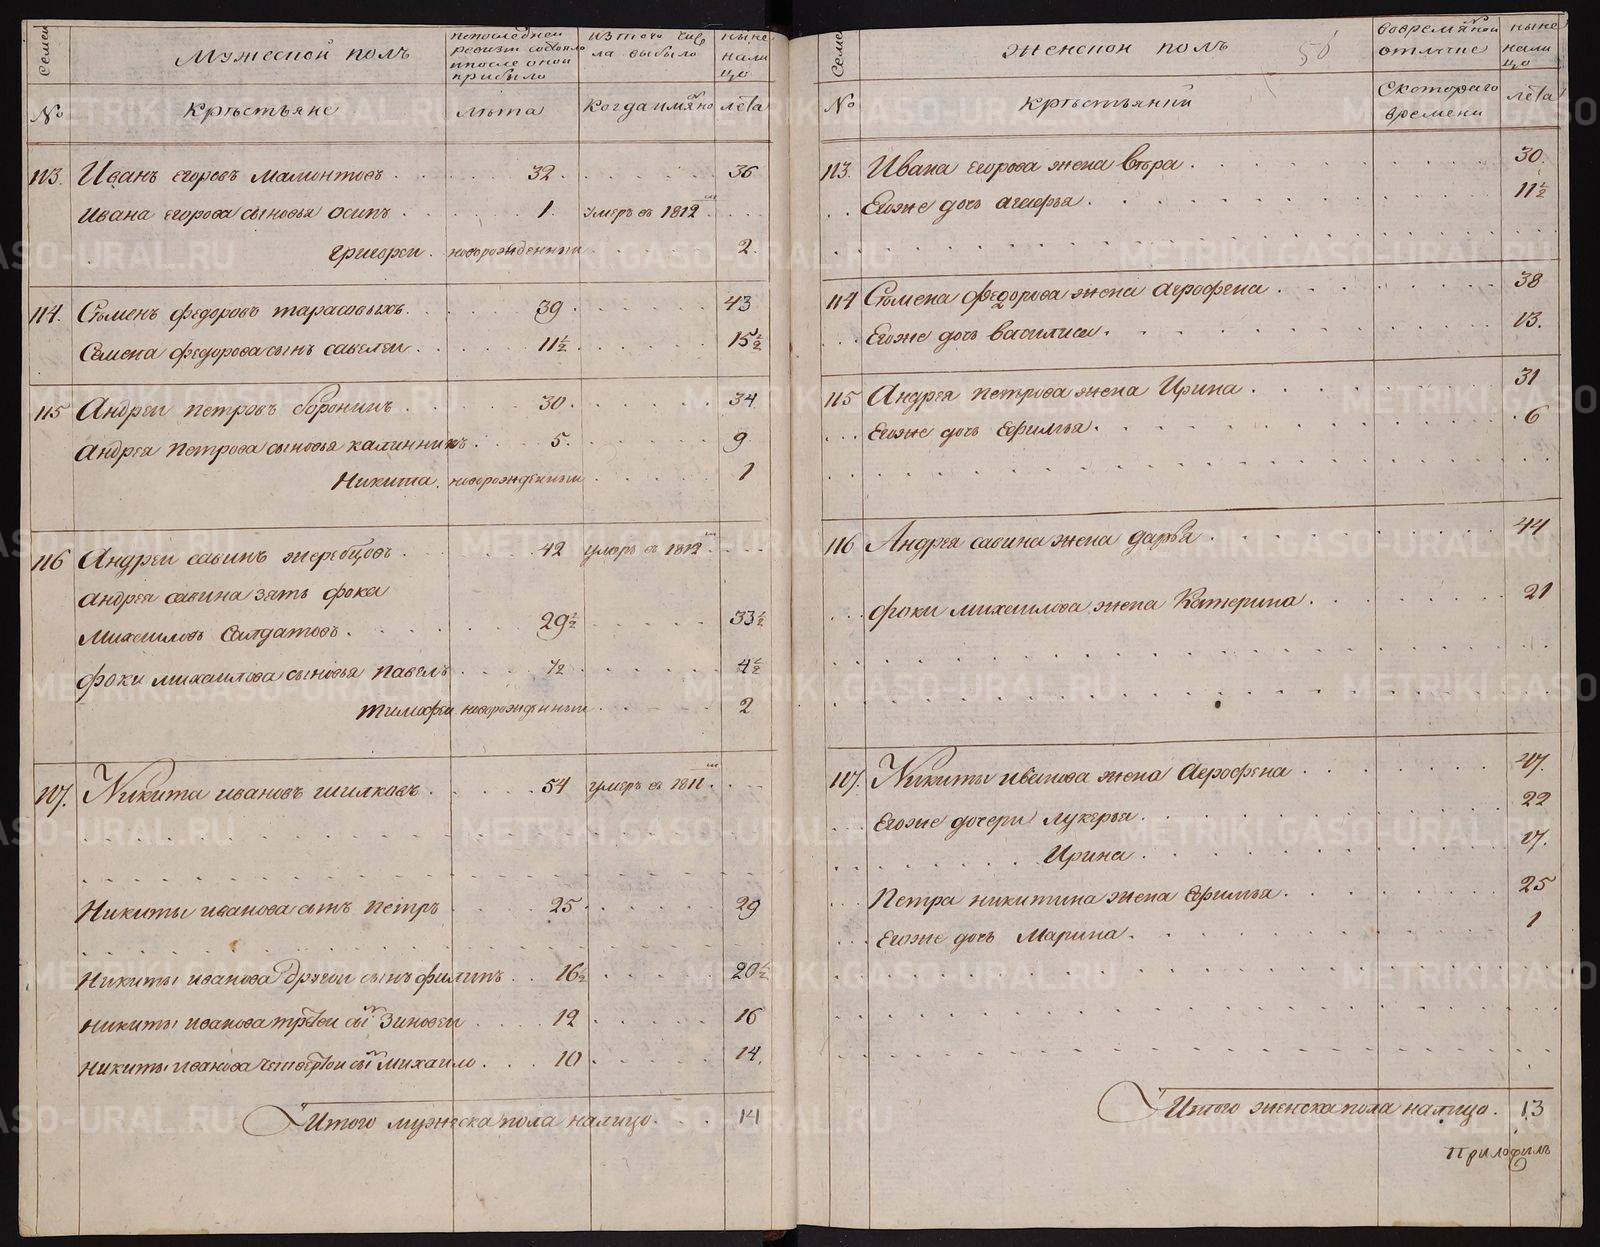 Семеи
Мужеской полъ
попоследнеи ревизiи состояло ипосле оной прибыло
изтого числа выбыло
ныне налицо
№
Крѣстьяне
лѣта
Когда имянно
лета
113. Иванъ егоровъ мамонтовъ 32. 36
Ивана егорова сыновья осипъ 1. умеръ въ 1812м
григореи новорожденныи 2.
114. Сѣменъ федоровъ тарасовыхъ 39 43
Семена федорова сынъ савелеи 11½ 15½
115 Андреи петровъ воронинъ 30. 34
Андрея Петрова сыновья калинникъ 5. 9
Никита новорожденныи 1
116 Андреи савинъ жеребцовъ 42 умеръ въ 1812м
Андрея савина зять фока
михаиловъ Салдатовъ 29½ 33½
фоки михаилова сыновья павелъ ½ 4½
тимофеи новорожденныи 2
117. Никита ивановъ шилковъ 54 умеръ въ 1811м
Никиты иванова сынъ петръ 25 29
Никиты иванова другои сынъ филипъ 16½ 20½
Никиты иванова третеи сынъ Зиновеи 12 16
Никиты иванова четвертои сынъ михаило 10 14.
Итого мужеска пола налицо 14
Семеи
Женской полъ
58
вовремянной отлучке
ныне налицо
№
Крѣстьянки
Скотораго времени
лета
113. Ивана егорова жена Вѣра 30.
Егоже дочь агафья 11½
114 Сѣмена федорова жена агрофена 38
Егоже дочь василиса 13.
115 Андрея петрова жена Ирина 31
Егоже дочь Ефимья 6
116 Андрея савина жена дарья 44
фоки михаилова жена Катерина 21
117. Никиты иванова жена Агрофена 47.
Егоже дочери лукерья 22
Ирина 17.
Петра никитина жена Ефимья 25
Егоже дочь Марина 1
Итого женска пола налицо 13
METRIKI.GASO-URAL.RU